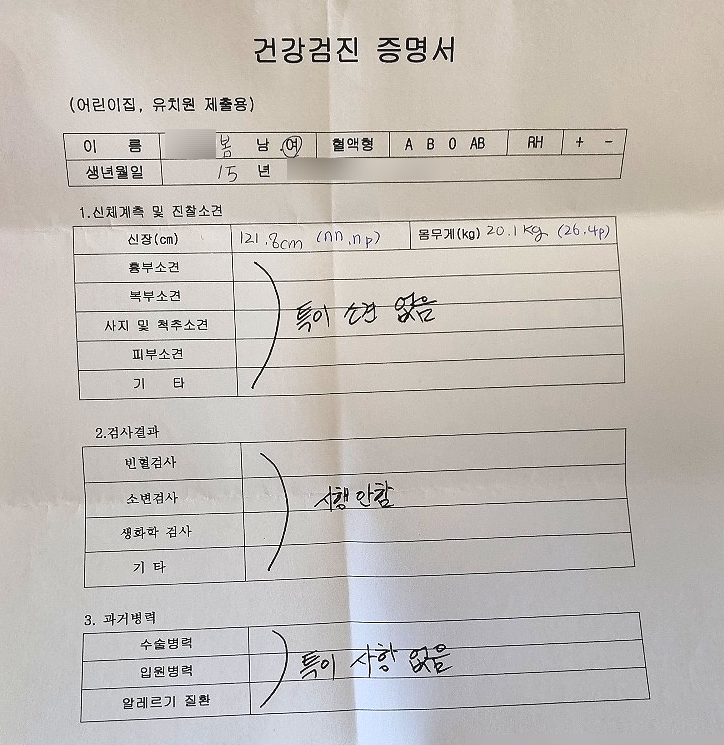 건강검진 증명서
(어린이집, 유치원 제출용)
이 름 봄 남 여 혈액형 A B O AB RH + -
생년월일 15 년
1.신체계측 및 진찰소견
신장(cm) 121.8cm 몸무게(kg) 20.1kg (26.4p)
흉부소견
복부소견
사지 및 척추소견
피부소견
기 타
특이 소견 없음
2.검사결과
빈혈검사
소변검사
생화학 검사
기 타
시행안함
3. 과거병력
수술병력
입원병력
알레르기 질환
특이 사항 없음